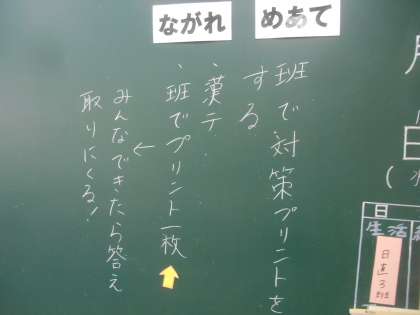 めあて
班で対策プリントを
する
ながれ
・漢テ
・班でプリント一枚
↓
みんなできたら答え
取りにくる!
日
生活
日直3班